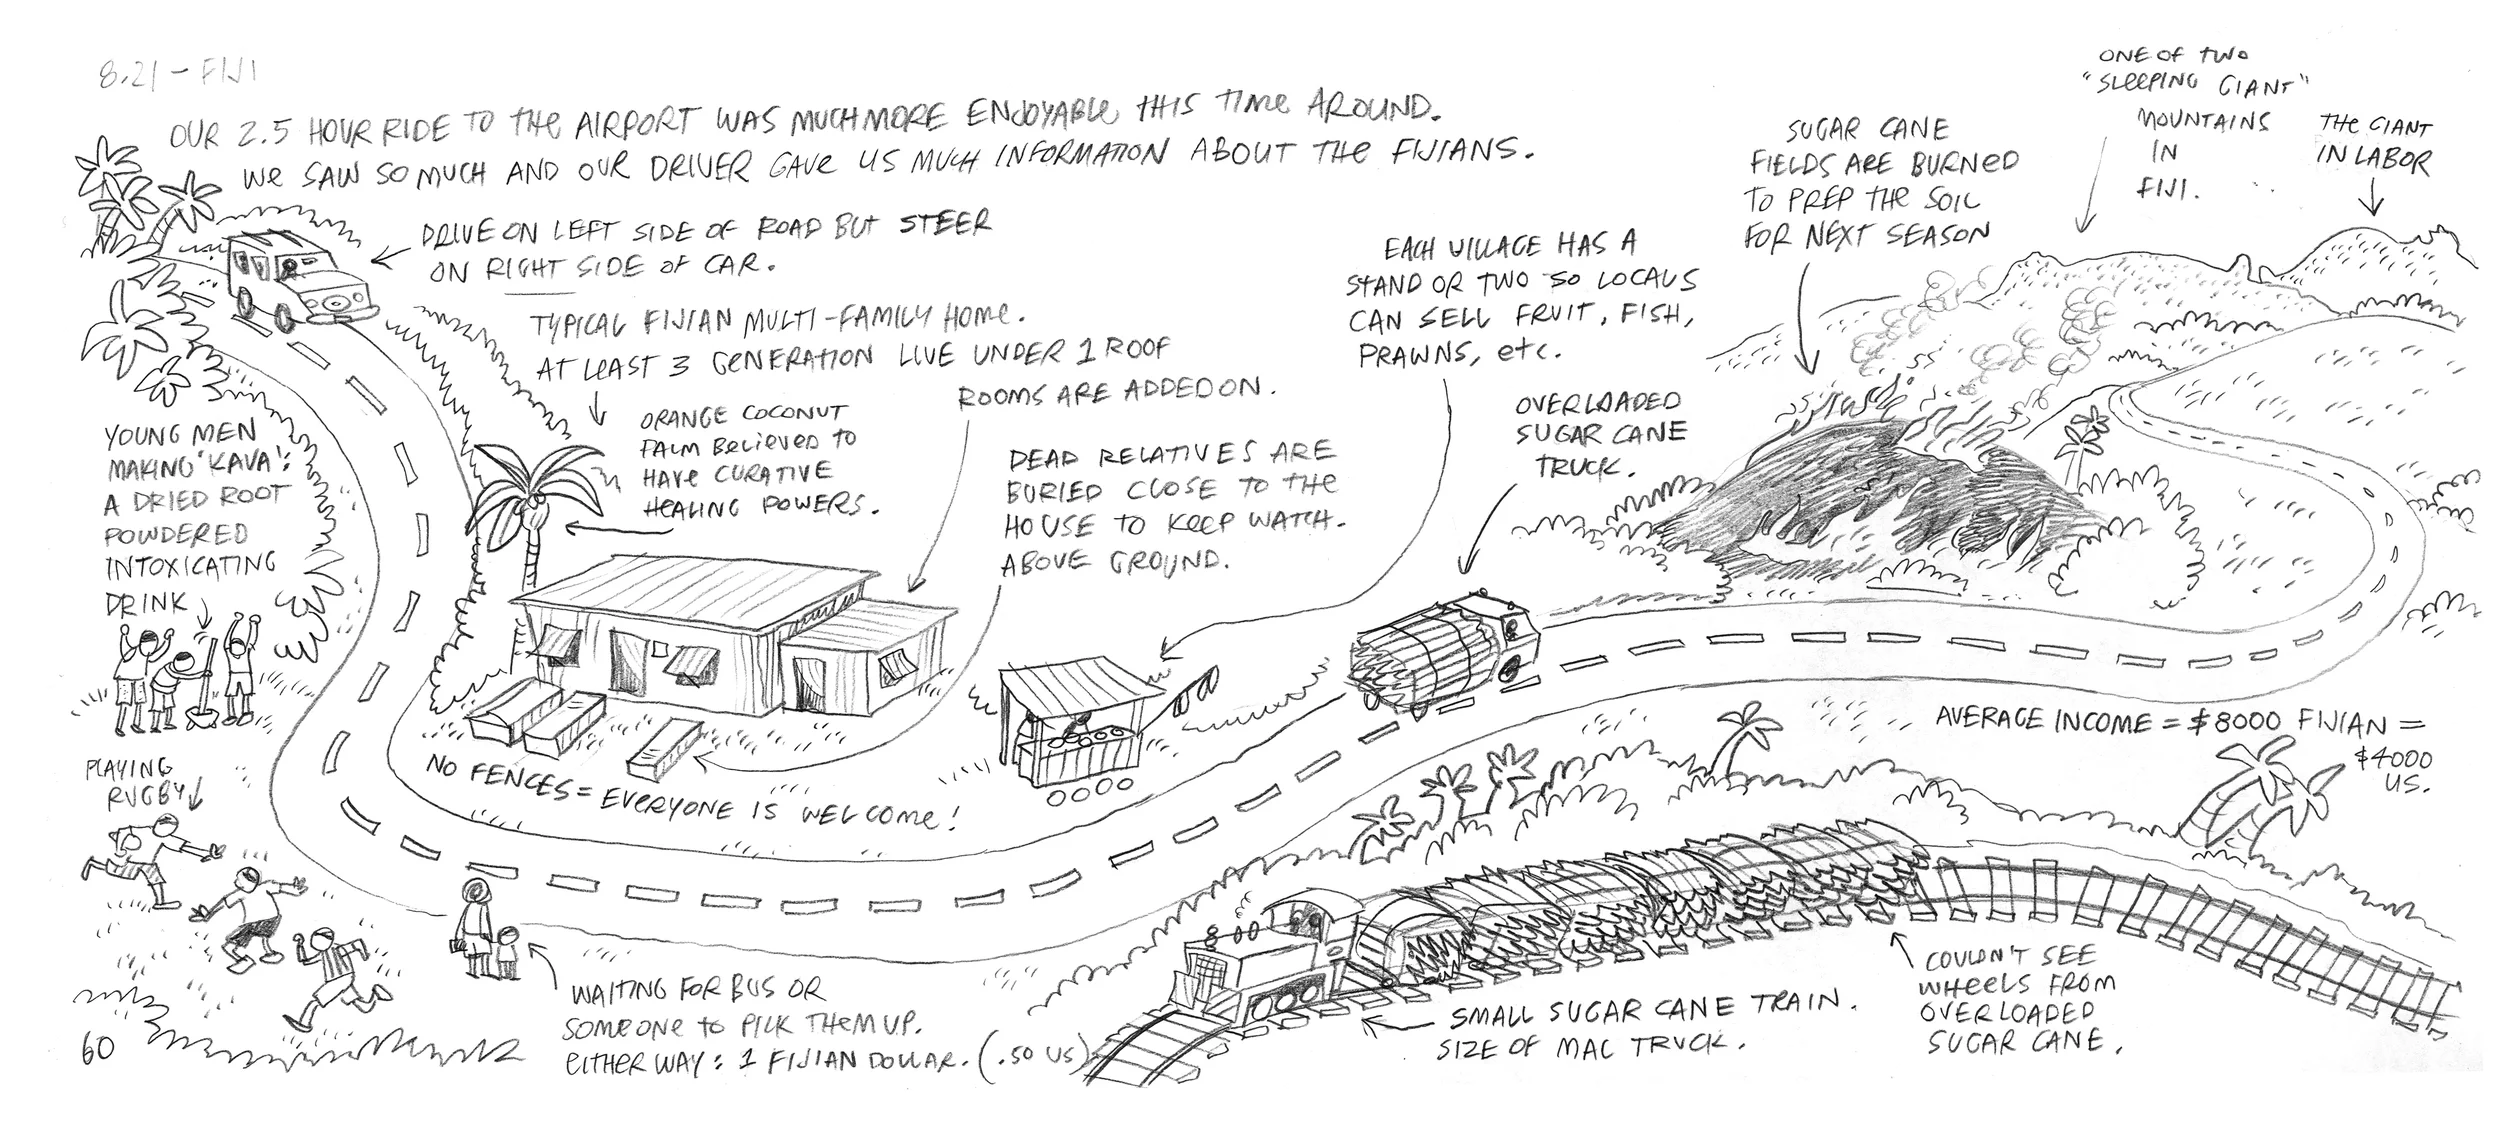 8.21 - FIJI
OUR 2.5 HOUR RIDE TO THE AIRPORT WAS MUCH MORE ENJOYABLE THIS TIME AROUND.
WE SAW SO MUCH AND OUR DRIVER GAVE US MUCH INFORMATION ABOUT THE FIJIANS.
DRIVE ON LEFT SIDE OF ROAD BUT STEER
ON RIGHT SIDE OF CAR.
TYPICAL FIJIAN MULTI-FAMILY HOME.
AT LEAST 3 GENERATION LIVE UNDER 1 ROOF
ROOMS ARE ADDED ON.
ORANGE COCONUT
PALM BELIEVED TO
HAVE CURATIVE
HEALING POWERS.
DEAD RELATIVES ARE
BURIED CLOSE TO THE
HOUSE TO KEEP WATCH.
ABOVE GROUND.
EACH VILLAGE HAS A
STAND OR TWO SO LOCALS
CAN SELL FRUIT, FISH,
PRAWNS, etc.
OVERLOADED
SUGAR CANE
TRUCK.
SUGAR CANE
FIELDS ARE BURNED
TO PREP THE SOIL
FOR NEXT SEASON
ONE OF TWO
"SLEEPING GIANT"
MOUNTAINS
IN
FIJI.
THE GIANT
IN LABOR
YOUNG MEN
MAKING 'KAVA':
A DRIED ROOT
POWDERED
INTOXICATING
DRINK
PLAYING
RUGBY
NO FENCES = EVERYONE IS WELCOME!
AVERAGE INCOME = $8000 FIJIAN =
$4000
US.
WAITING FOR BUS OR
SOMEONE TO PICK THEM UP.
EITHER WAY: 1 FIJIAN DOLLAR. (.50 US)
SMALL SUGAR CANE TRAIN.
SIZE OF MAC TRUCK.
COULDN'T SEE
WHEELS FROM
OVERLOADED
SUGAR CANE.
60